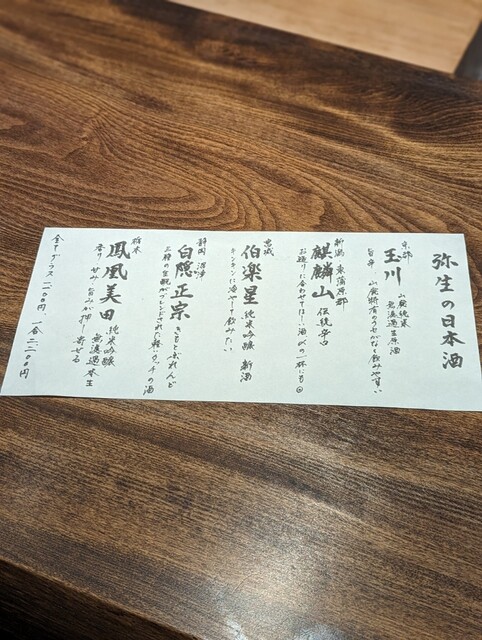 弥生の日本酒
京都
玉川 山廃純米 無濾過生原酒
旨辛 山廃特有のうせがなく飲みやすい
新潟 東蒲原郡
麒麟山 伝統辛口
お造りに合わせてほしい酒 〆の一杯にも
宮城
伯楽星 純米吟醸 新酒
キンキンに冷やして飲みたい
静岡 沼津
白隠正宗 きもとぶれんど
生酛がブレンドされた軽いタッチの酒
栃木
鳳凰美田 純米吟醸 無濾過本生
香り 甘み 旨みが押し寄せる
全てグラス 一合